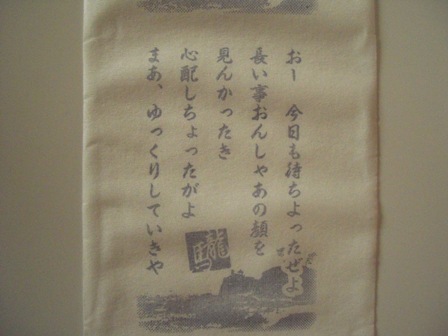 おー 今日も待ちよったぜよ
長い事おんしゃあの顔を
見んかったき
心配しちょったがよ
まあ、ゆっくりしていきや
龍馬